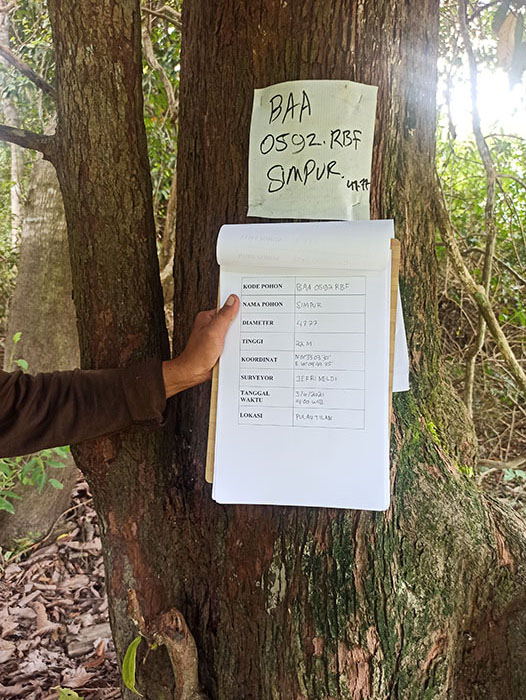 BAA
0592.RBF
SIMPUR.
47.77
KODE POHON BAA 0592 RBF
NAMA POHON SIMPUR
DIAMETER 47.77
TINGGI 22 M
KOORDINAT
SURVEYOR JEFRI MELDI
TANGGAL
WAKTU
LOKASI PULAU TILAN